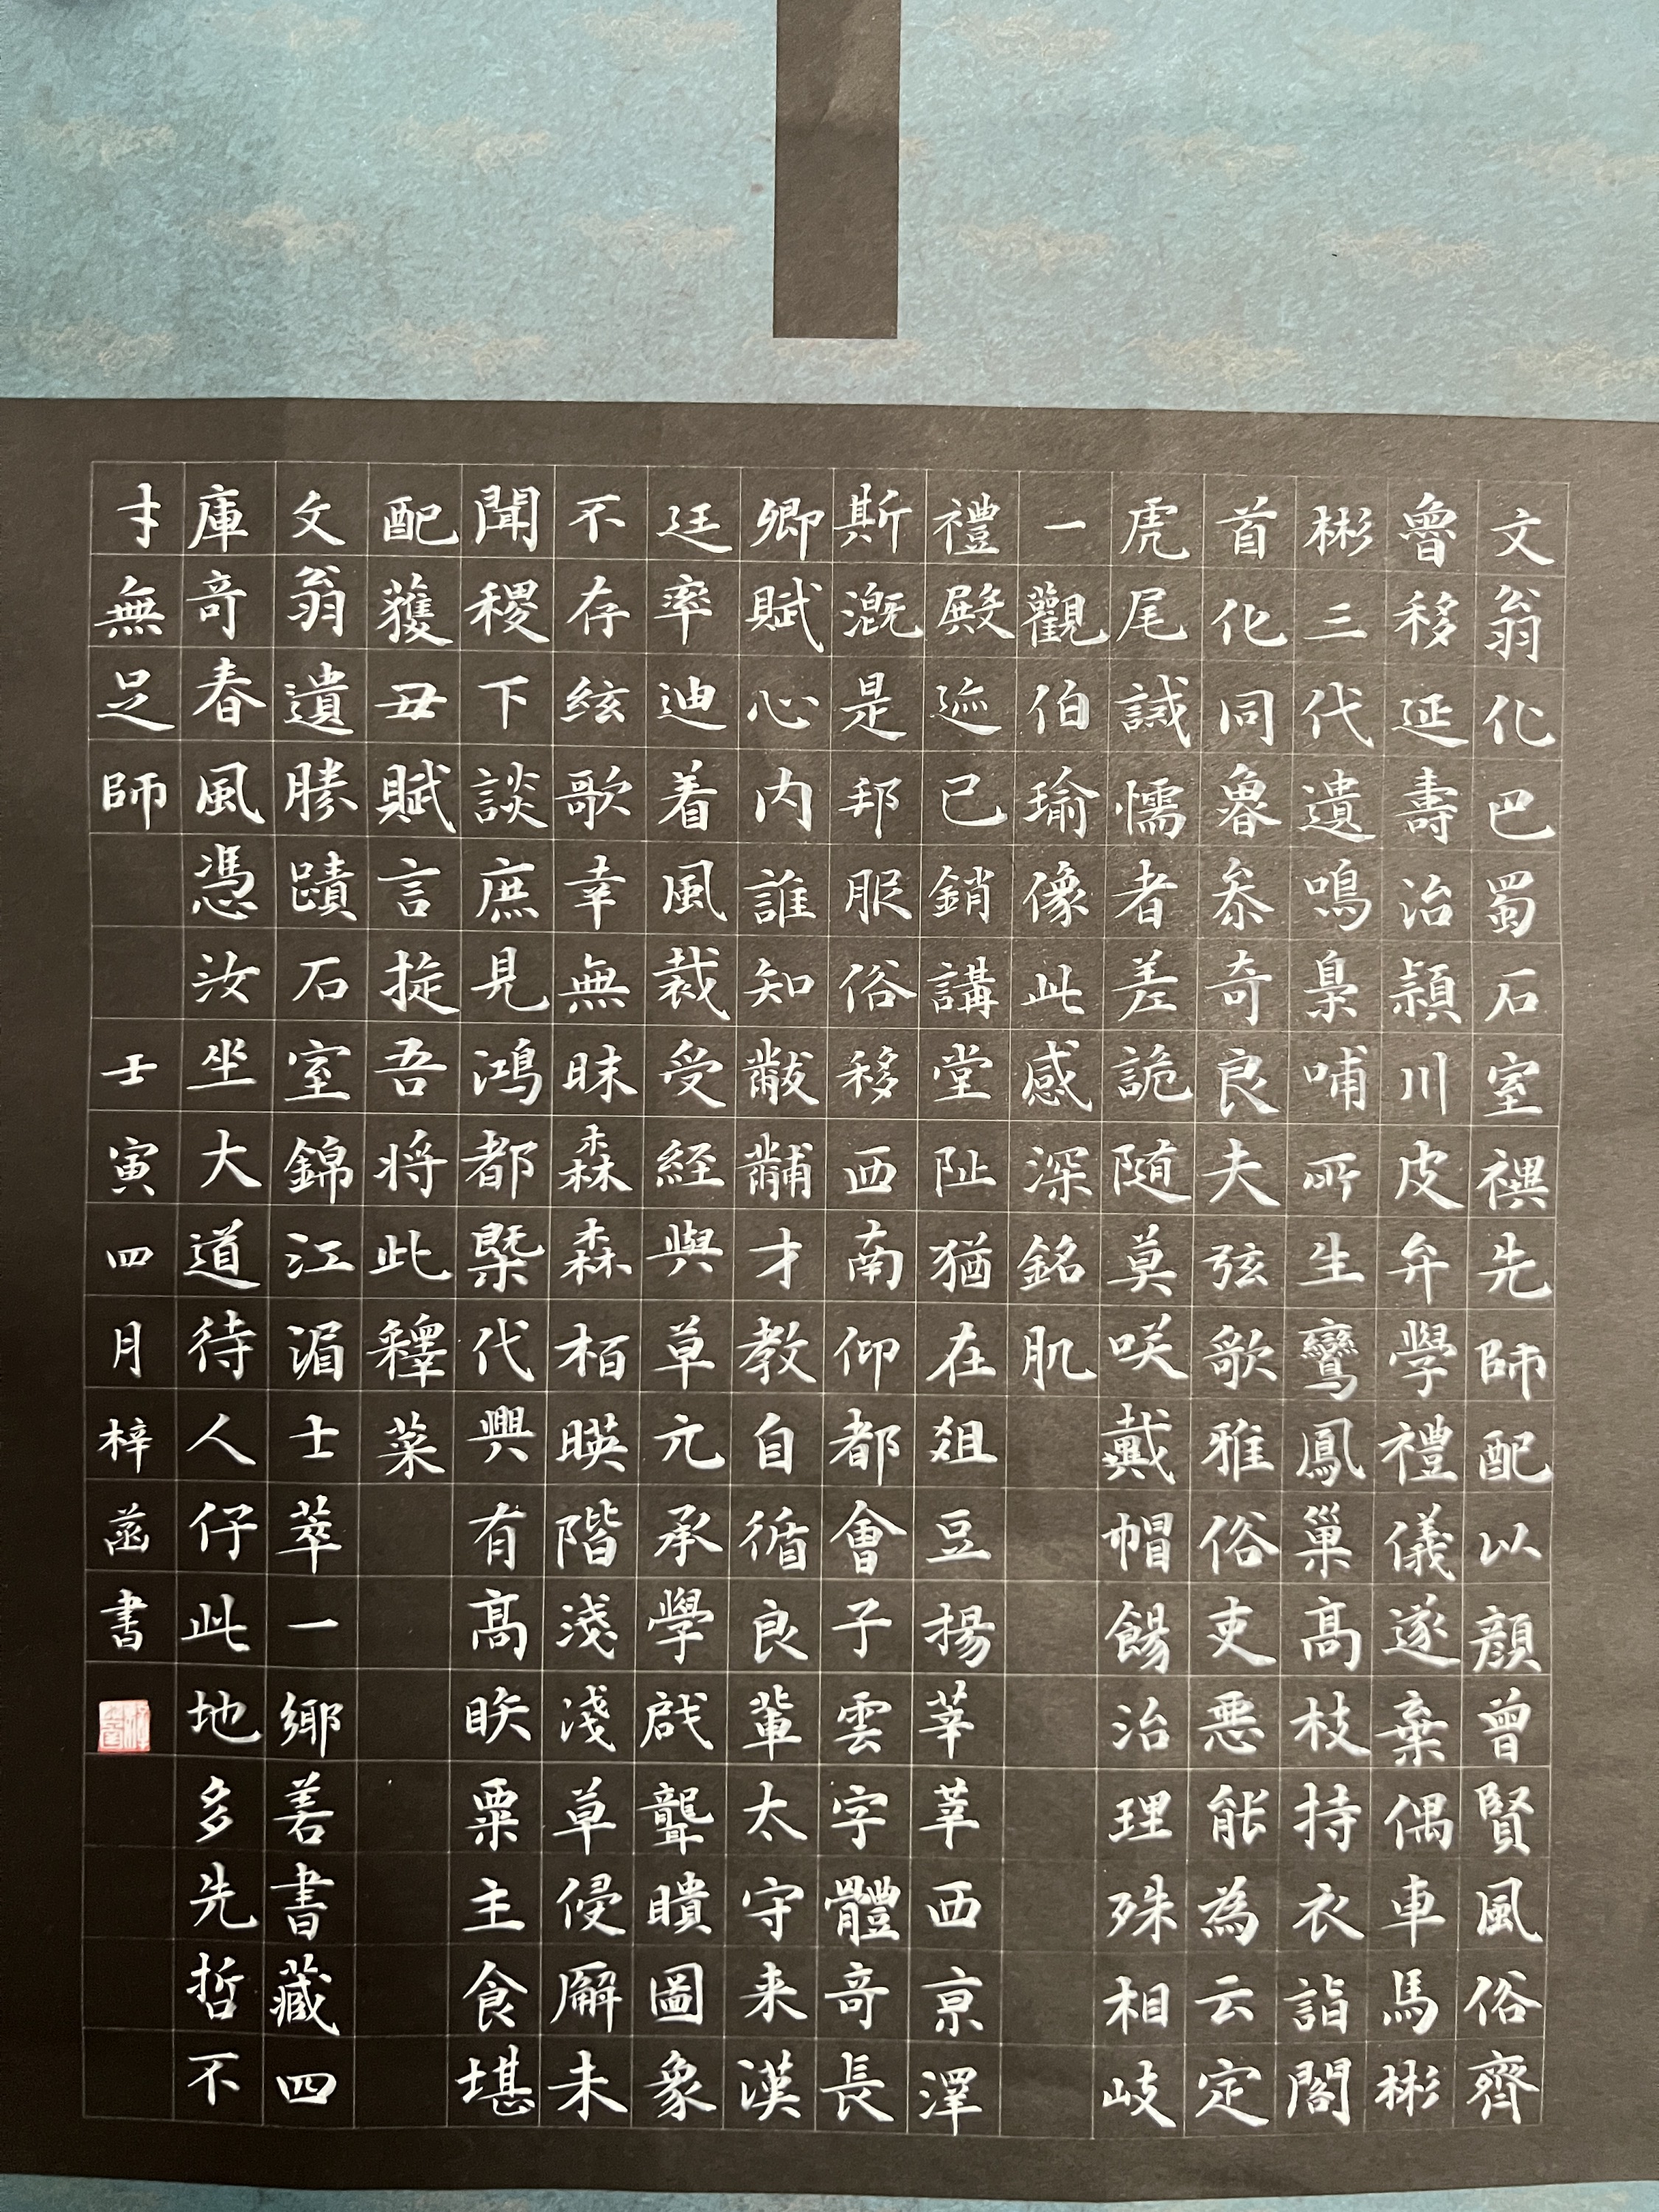 文翁化巴蜀石室禩先師配以顔曾賢風俗齊
魯移延壽治潁川皮弁學禮儀遂棄偶車馬彬
彬三代遺鳴梟哺所生鸞鳳巢髙枝持衣詣閣
首化同魯叅奇良夫弦歌雅俗吏惡能為云定
虎尾誡懦者差詭随莫咲戴帽餳治理殊相岐
一觀伯瑜像此感深銘肌
禮殿迹已銷講堂阯猶在爼豆揚莘莘西京澤
斯溉是邦服俗移西南仰都會子雲字體奇長
卿賦心內誰知黻黼才教自循良軰太守来漢
廷率迪着風裁受経與草元承學啟聾瞶圖象
不存絃歌幸無昧森森栢暎階淺淺草侵廨未
聞稷下談庶見鴻都槩代興有髙朕粟主食堪
配蒦丑賦言掟吾将此釋菜
文翁遺勝蹟石室錦江湄士萃一鄉善書藏四
庫竒春風憑汝坐大道待人仔此地多先哲不
才無足師 壬寅四月梓菡書